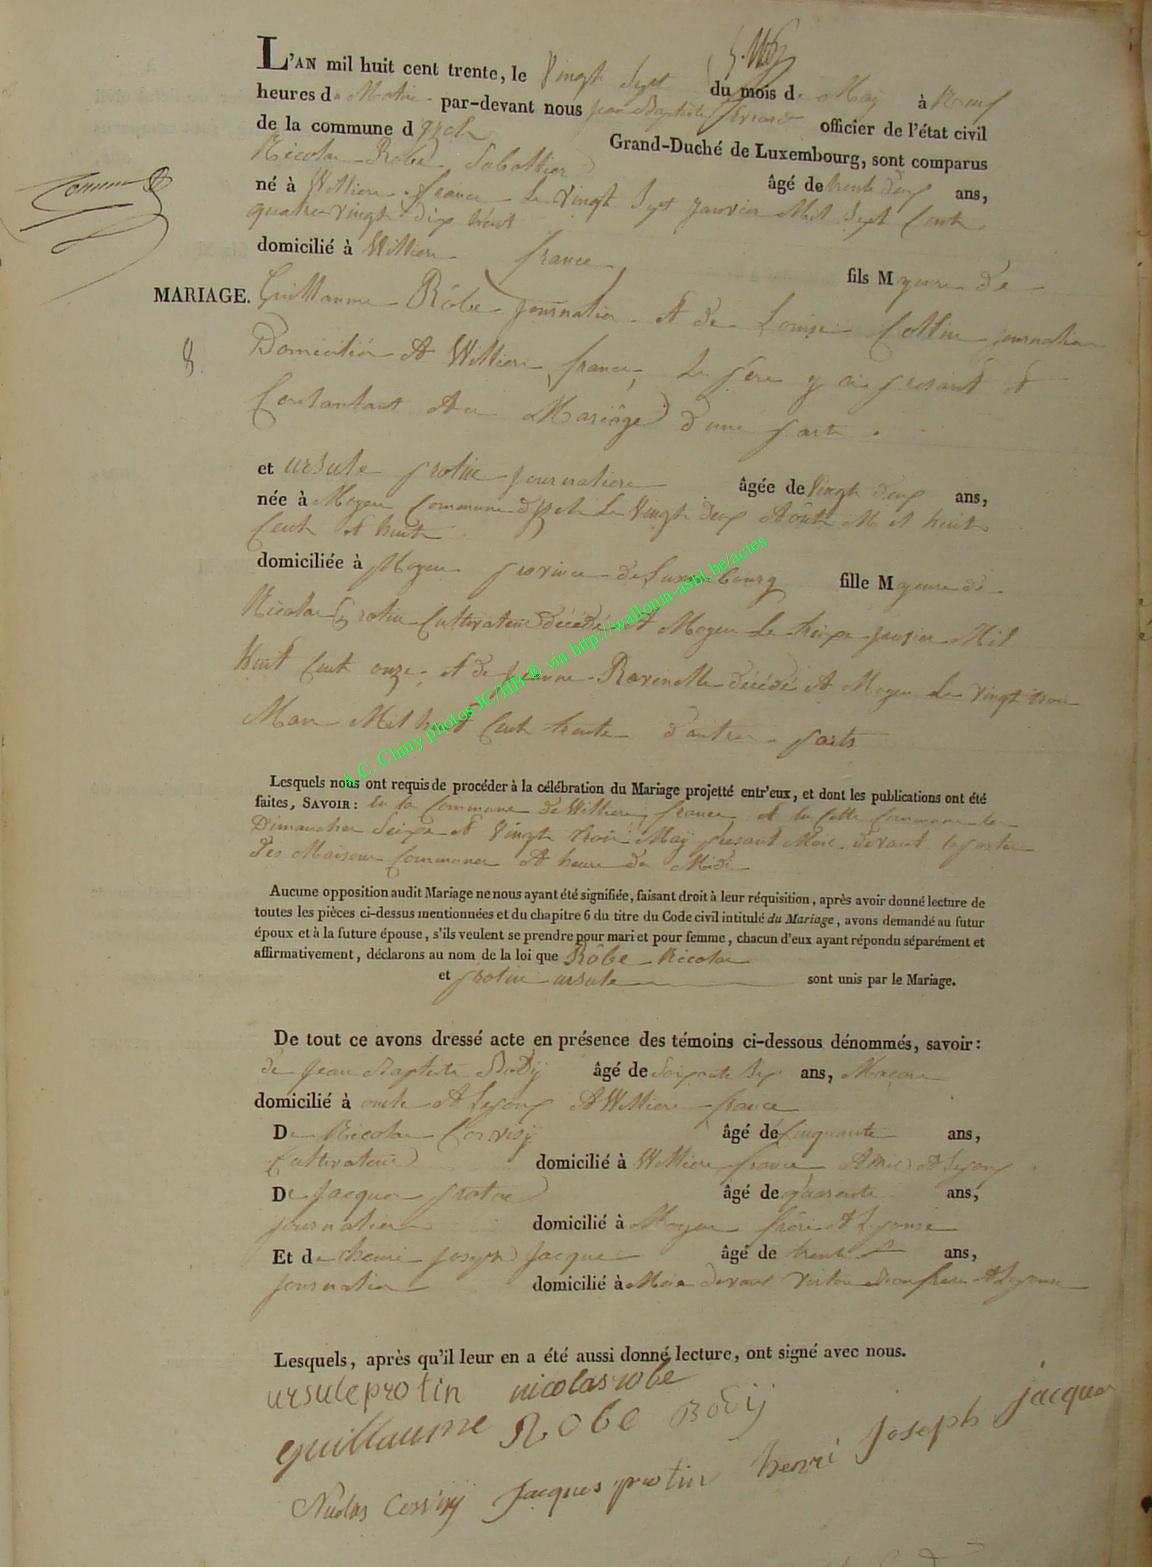 L'AN mil huit cent trente, le Vingt Sept du mois de May à Neuf
heures du Matin par-devant nous Jean Baptiste officier de l'état civil
de la commune d'Izel Grand-Duché de Luxembourg, sont comparus
Nicolas Robe Sabottier âgé de trente deux ans,
né à Williers france Le vingt Sept Janvier Mil Sept Cent
quatre vingt dix huit
domicilié à Williers france fils Mageure de
MARIAGE. Guillaume Robe journalier Et de Louise Collin journalier
8. Domicilié At Williers france, Le père y ci présant Et
Consantant Au Mariâge D'une part.
et ursule protin journaliere âgée de Vingt deux ans,
née à Moyen Commune d'Izel Le Vingt deux Aôut Mil huit
Cent Et huit
domiciliée à Moyen province de Luxembourg fille Mageure de
Nicolas protin Cultivateur décédé At Moyen Le Mil
huit Cent onze, et de Jeanne Ravenelle décédé At Moyen Le vingt trois
Mars Mil huit Cent trente d'autre parts
A.C. Chiny photos JC/HB® via http://wallonia-asbl.be/actes
Lesquels nous ont requis de procéder à la célébration du Mariage projetté entr'eux, et dont les publications ont été
faites, SAVOIR: En la Commune de Williers france et En Cette Commune les
Dimanches Seize et Vingt trois May présant Mois devant la porte
des Maisons Communes At heure de Midi
Aucune opposition audit Mariage ne nous ayant été signifiée, faisant droit à leur réquisition, après avoir donné lecture de
toutes les pièces ci-dessus mentionnées et du chapitre 6 du titre du Code civil intitulé du Mariage, avons demandé au futur
époux et à la future épouse, s'ils veulent se prendre pour mari et pour femme, chacun d'eux ayant répondu séparément et
affirmativement, déclarons au nom de la loi que Robe Nicolas
et protin ursule sont unis par le Mariage.
De tout ce avons dressé acte en présence des témoins ci-dessous dénommés, savoir:
de Jean Baptiste Bodij âgé de ans, Maçon
domicilié à oncle At Lepoux At Williers france
De Nicolas Corvisij âgé de Cinquante ans,
Cultivateur domicilié à Williers france Amie At Lepoux
De Jacques protin âgé de quarante ans,
journalier domicilié à Moyen frère At Lepouse
Et de henri joseph Jacques âgé de trente ans,
journalier domicilié à Meix devant virton At Lepouse
Lesquels, après qu'il leur en a été aussi donné lecture, ont signé avec nous.
ursule protin nicolas robe
guillaume Robe Bodij
Nicolas Corvisij Jacques protin henri Joseph jacques